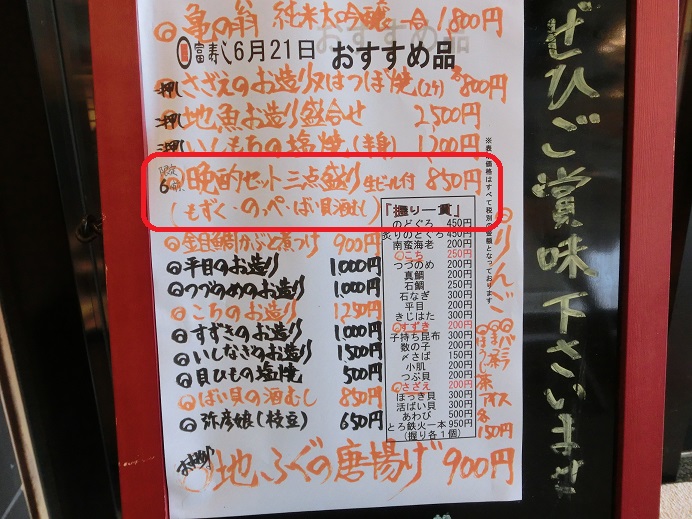 亀の翁 純米大吟醸 一合 1,800円
富寿し 6月21日 おすすめ品
押し さざえのお造り又はつぼ焼(2ケ) 800円
押し 地魚お造り盛合せ 2,500円
押し いしもちの塩焼(1尾) 1,200円
限定6 晩酌セット三点盛り 生ビール付 850円
(もずく・のっぺ・ばい貝酒むし)
金目鯛かぶと煮つけ 900円
平目のお造り 1,000円
つづのめのお造り 1,000円
こちのお造り 1,250円
すずきのお造り 1,000円
いしなぎのお造り 1,500円
貝ひもの塩焼 500円
ばい貝の酒むし 850円
弥彦娘(枝豆) 650円
地ふぐの唐揚げ 900円
「握り一貫」
のどぐろ 450円
炙りのどぐろ 450円
南蛮海老 200円
○こち 250円
つづのめ 200円
真鯛 200円
石鯛 250円
石なぎ 300円
平目 200円
きじはた 300円
○すずき 200円
子持ち昆布 300円
数の子 200円
〆さば 150円
小肌 200円
つぶ貝 200円
○さざえ 200円
ほっき貝 300円
活ばい貝 300円
あわび 500円
とろ鉄火一本 950円
(握り各1個)
※表示価格はすべて税別の金額となっております
りんご
バニラ
抹茶
ほうじ茶
アイス
各150円
ぜひご賞味下さいませ